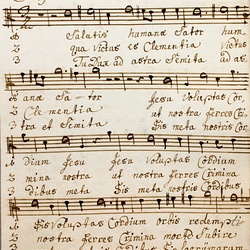 Salutis humanæ Sator hum
3 qua Victus es Clementia Victus
3 Tu Dux ad astra Semita ad as
anæ Sa - tor Jesu Voluptas Cor
2 Clementia ut nostra ferres Cri
3 tra et Semita Sis meta nostris Co
Dium Jesu Jesu Voluptas Cordium
2 mina nostra ut nostra ferres Crimina
3 dibus meta Sis meta nostris Cordibus
Sis Voluptas Cordium orbis redemp
nostra ferres Crimina mortem Subire